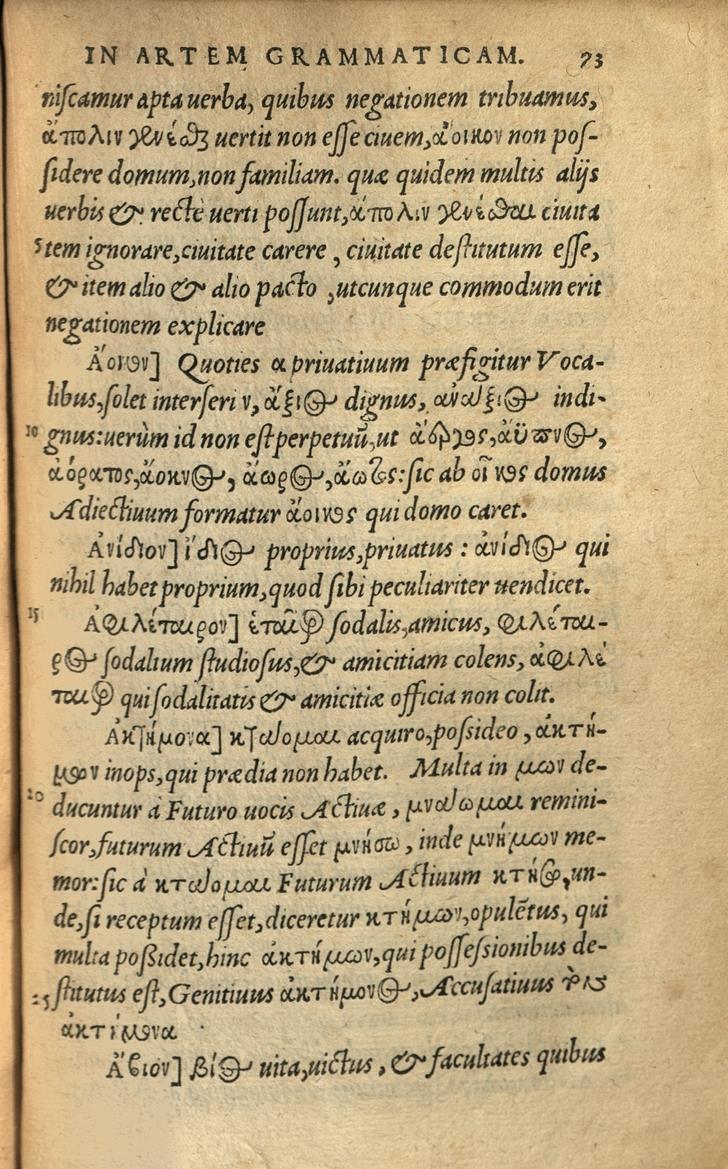 IN ARTEM GRAMMATICAM. 73
niſcamur apta uerba, quibus negationem tribuamus,
ἀπολιν γενέσθαι uertit non eſſe ciuem, ἄοικον non poſ-
ſidere domum, non familiam. quæ quidem multis alijs
uerbis & rectè uerti poſſunt, ἀπολιν γενέσθαι ciuita
5 tem ignorare, ciuitate carere, ciuitate deſtitutum eſſe,
& item alio & alio pacto, utcunque commodum erit
negationem explicare
Ἄοικον] Quoties α priuatiuum præfigitur Voca-
libus, ſolet interſeri ν, ἄξιος dignus, ἀνάξιος indi-
10 gnus: uerùm id non eſt perpetuũ, ut ἀόργος, ἄϋπνος,
ἀόρατος, ἄοκνος, ἄωρος, ἄωτος: ſic ab οἶκος domus
Adiectiuum formatur ἄοικος qui domo caret.
Ἀνίδιον] ἴδιος proprius, priuatus: ἀνίδιος qui
nihil habet proprium, quod ſibi peculiariter uendicet.
15 Ἀφιλέταιρον] ἑταῖρος ſodalis, amicus, φιλέται-
ρος ſodalium ſtudioſus, & amicitiam colens, ἀφιλέ
ταιρος qui ſodalitatis & amicitiæ officia non colit.
Ἀκτήμονα] κτάομαι acquiro, poſsideo, ἀκτή-
μων inops, qui prædia non habet. Multa in μων de-
20 ducuntur à Futuro uocis Actiuæ, μνάωμαι remini-
ſcor, futurum Actiuũ eſſet μνήσω, inde μνήμων me-
mor: ſic à κτάομαι Futurum Actiuum κτήσω, un-
de, ſi receptum eſſet, diceretur κτήμων, opulẽtus, qui
multa poßidet, hinc ἀκτήμων, qui poſſeſsionibus de-
25 ſtitutus eſt, Genitiuus ἀκτήμονος, Accuſatiuus
ἀκτήμονα
Ἄβιον] βίος uita, uictus, & facultates quibus